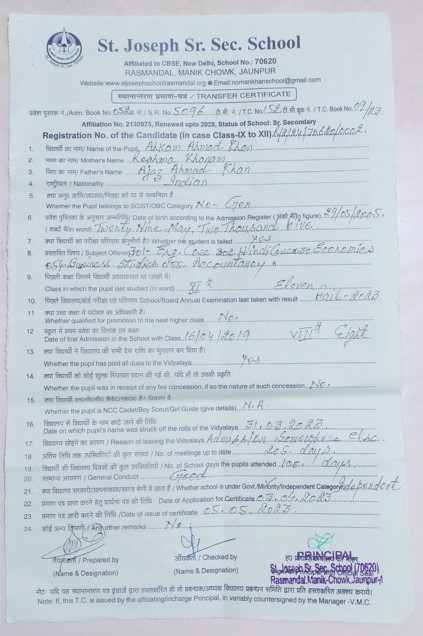 St. Joseph Sr. Sec. School
Affiliated to CBSE, New Delhi, School No.: 70620
RASMANDAL, MANIK CHOWK, JAUNPUR
Website:www.stjosephschoolrasmandal.org Email.nomankhanschool@gmail.com
स्थानान्तरण प्रमाण-पत्र / TRANSFER CERTIFICATE
प्रवेश पुस्तक नं./Adm. Book No. 052 क्र. सं. / S.R. No. 5096 टी.सी. नं. / T.C. No. 152 टी.सी. बुक नं. / T.C. Book No. 09/23.
Affiliation No. 2130975, Renewed upto 2028, Status of School: Sr. Secondary
Registration No. of the Candidate (in case Class-IX to XII)
1. विद्यार्थी का नाम/ Name of the Pupil Ahkam Ahmad Khan
2. माता का नाम/ Mother's Name Reshma Khanam
3. पिता का नाम/ Father's Name Ajaz Ahmad Khan
4. राष्ट्रीयता / Nationality Indian
5. क्या अनु० जाति/जा०जा०/पिछड़ा वर्ग या से सम्बन्धित है
Whether Pupil belongs to SC/ST/OBC Category No - Gen
6. प्रवेश पुस्तिका के अनुसार जन्मतिथि/ Date of birth according to the Admission Register ( figure) 29/05/2005.
( शब्दों में/in word) Twenty Nine May, Two Thousand Five.
7. क्या विद्यार्थी का परीक्षा परिणाम अनुत्तीर्ण है?/ Whether the student is failed Yes
8. प्रस्तावित विषय / Subject Offered 301- Eng. Core 302 Hindi Core Economics
054 Business Studies 055 Accountancy
9. पिछली कक्षा जिसमें विद्यार्थी अध्ययनरत था (शब्दों में)
Class in which the pupil last studied (in word) XI th Eleven
10. पिछले विद्यालय/बोर्ड परीक्षा एवं परिणाम School/Board Annual Examination last taken with result 2023.
11. क्या उच्च कक्षा में पदोन्नत का अधिकारी है।
Whether qualified for promotion to the next higher class No.
12. स्कूल में प्रथम प्रवेश का दिनांक एवं कक्षा
Date of first admission in the School with Class 16/04/2019 VIII th Eight
13. क्या विद्यार्थी ने विद्यालय की सभी देय राशि का भुगतान कर दिया है।
Whether the pupil has paid all dues to the Vidyalaya Yes.
14. क्या विद्यार्थी को कोई शुल्क रियायत प्रदान की गई थी, यदि हाँ तो उसकी प्रकृति
Whether the pupil was in receipt of any fee concession, if so the nature of such concession No.
15. क्या विद्यार्थी
Whether the pupil is NCC Cadet/Boy Scout/Girl Guide (give details) N.A.
16. विद्यालय से विद्यार्थी के नाम काटे जाने की तिथि
Date on which pupil's name was struck off the rolls of the Vidyalaya 31.03.2023
17. विद्यालय छोड़ने का कारण / Reason of leaving the Vidyalaya Admission Somewhere Else.
18. No. of meetings up to date 205. days.
19. No. of School days the pupils attended 100. days.
20. सामान्य आचरण / General Conduct Good
21. Whether school is under Govt./Minority/Independent Category Independent
22. प्रमाण पत्र प्राप्त करने हेतु प्रार्थना पत्र की तिथि Date of Application for Certificate 03.04.2023
23. प्रमाण पत्र जारी करने की तिथि /Date of issue of certificate 05.05.2023
24. कोई अन्य टिप्पणी / Any other remarks No
तैयारकर्ता / Prepared by
(Name & Designation)
जाँचकर्ता / Checked by
(Name & Designation)
PRINCIPAL
St. Joseph Sr. Sec. School (70620)
Rasmandal, Manik-Chowk, Jaunpur
नोट: यदि यह स्थानान्तरण पत्र इंचार्ज द्वारा हस्ताक्षरित हो तो प्रबन्धक/अध्यक्ष विद्यालय प्रबन्धन समिति द्वारा प्रति हस्ताक्षरित अवश्य करायें।
Note: If, this T.C. is issued by the officiating/incharge Principal, in variably countersigned by the Manager -V.M.C.